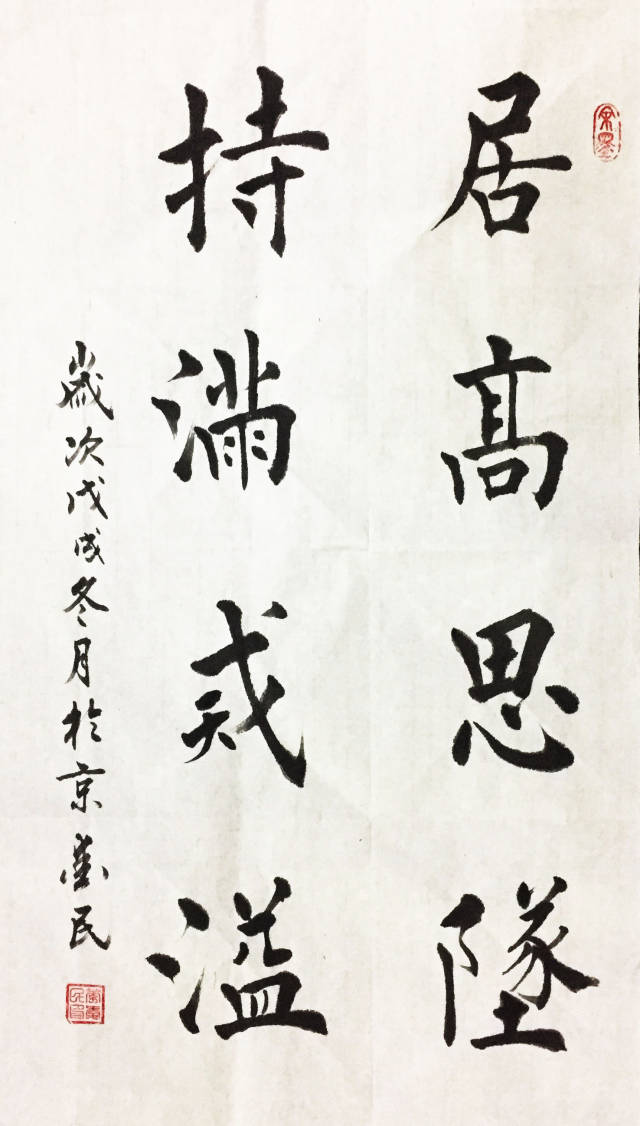 居高思墜
持滿戒溢
歲次戊戌冬月於京 民